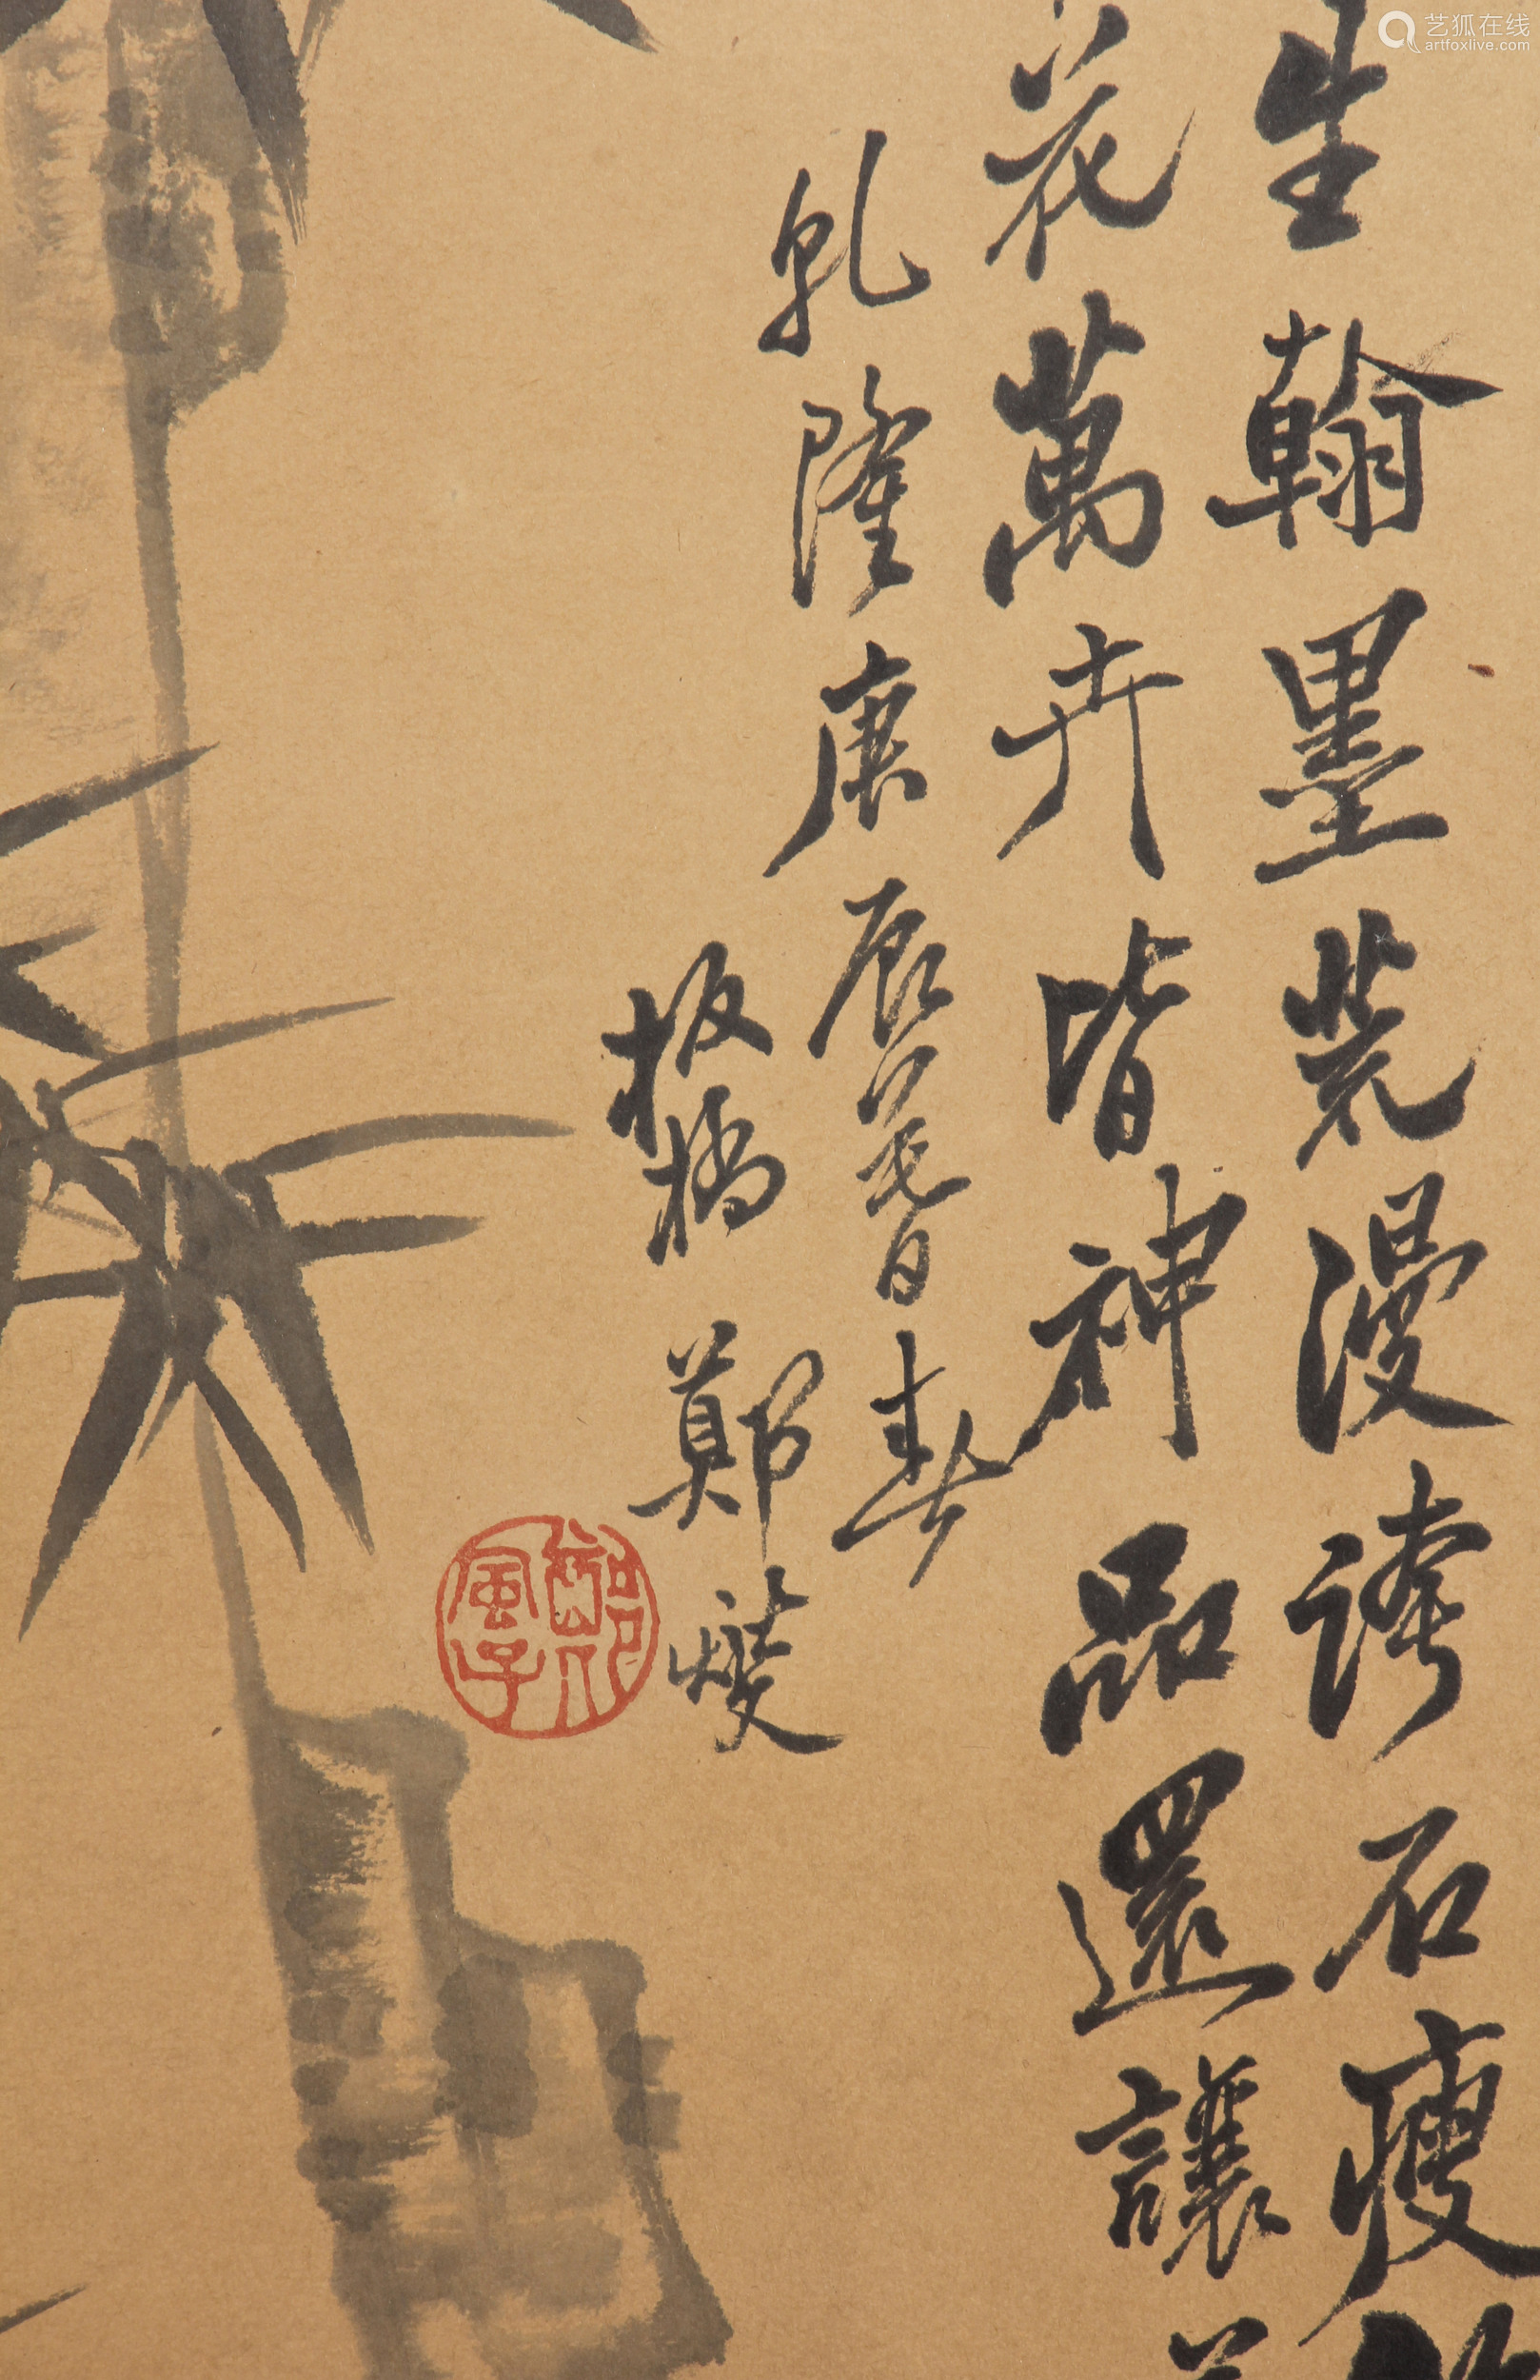 生翰墨荒漫誇石瘦
花萬卉皆神品還讓
乹隆庚辰暮春
板橋鄭燮
鄭風子
艺狐在线
artfoxlive.com